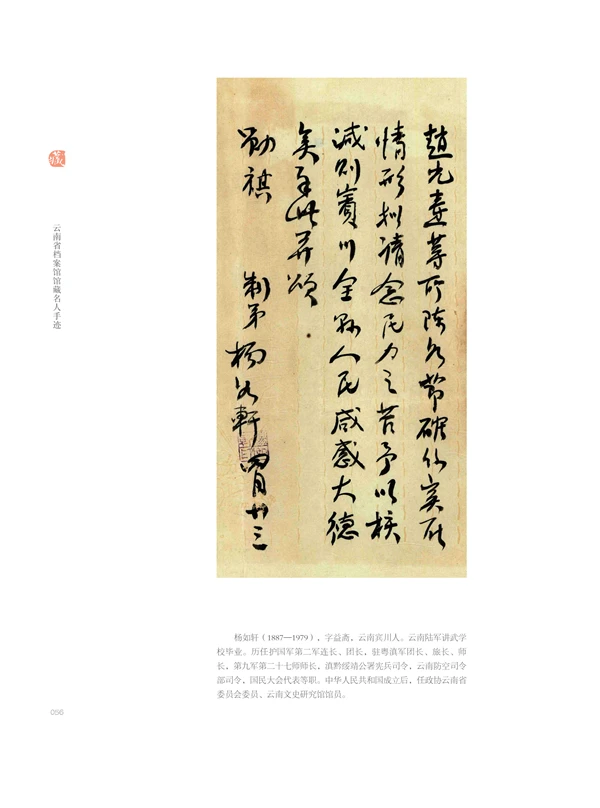 等所陳各節確係實在
情形拟請念民力之苦予以核
減則賓川全縣人民咸感大德
矣专此并頌
勛祺 制弟楊如軒 四月廿三
藏
云南省档案馆馆藏名人手迹
杨如轩（1887—1979），字益斋，云南宾川人。云南陆军讲武学
校毕业。历任护国军第二军连长、团长，驻粤滇军团长、旅长、师
长，第九军第二十七师师长，滇黔绥靖公署宪兵司令，云南防空司令
部司令，国民大会代表等职。中华人民共和国成立后，任政协云南省
委员会委员、云南文史研究馆馆员。